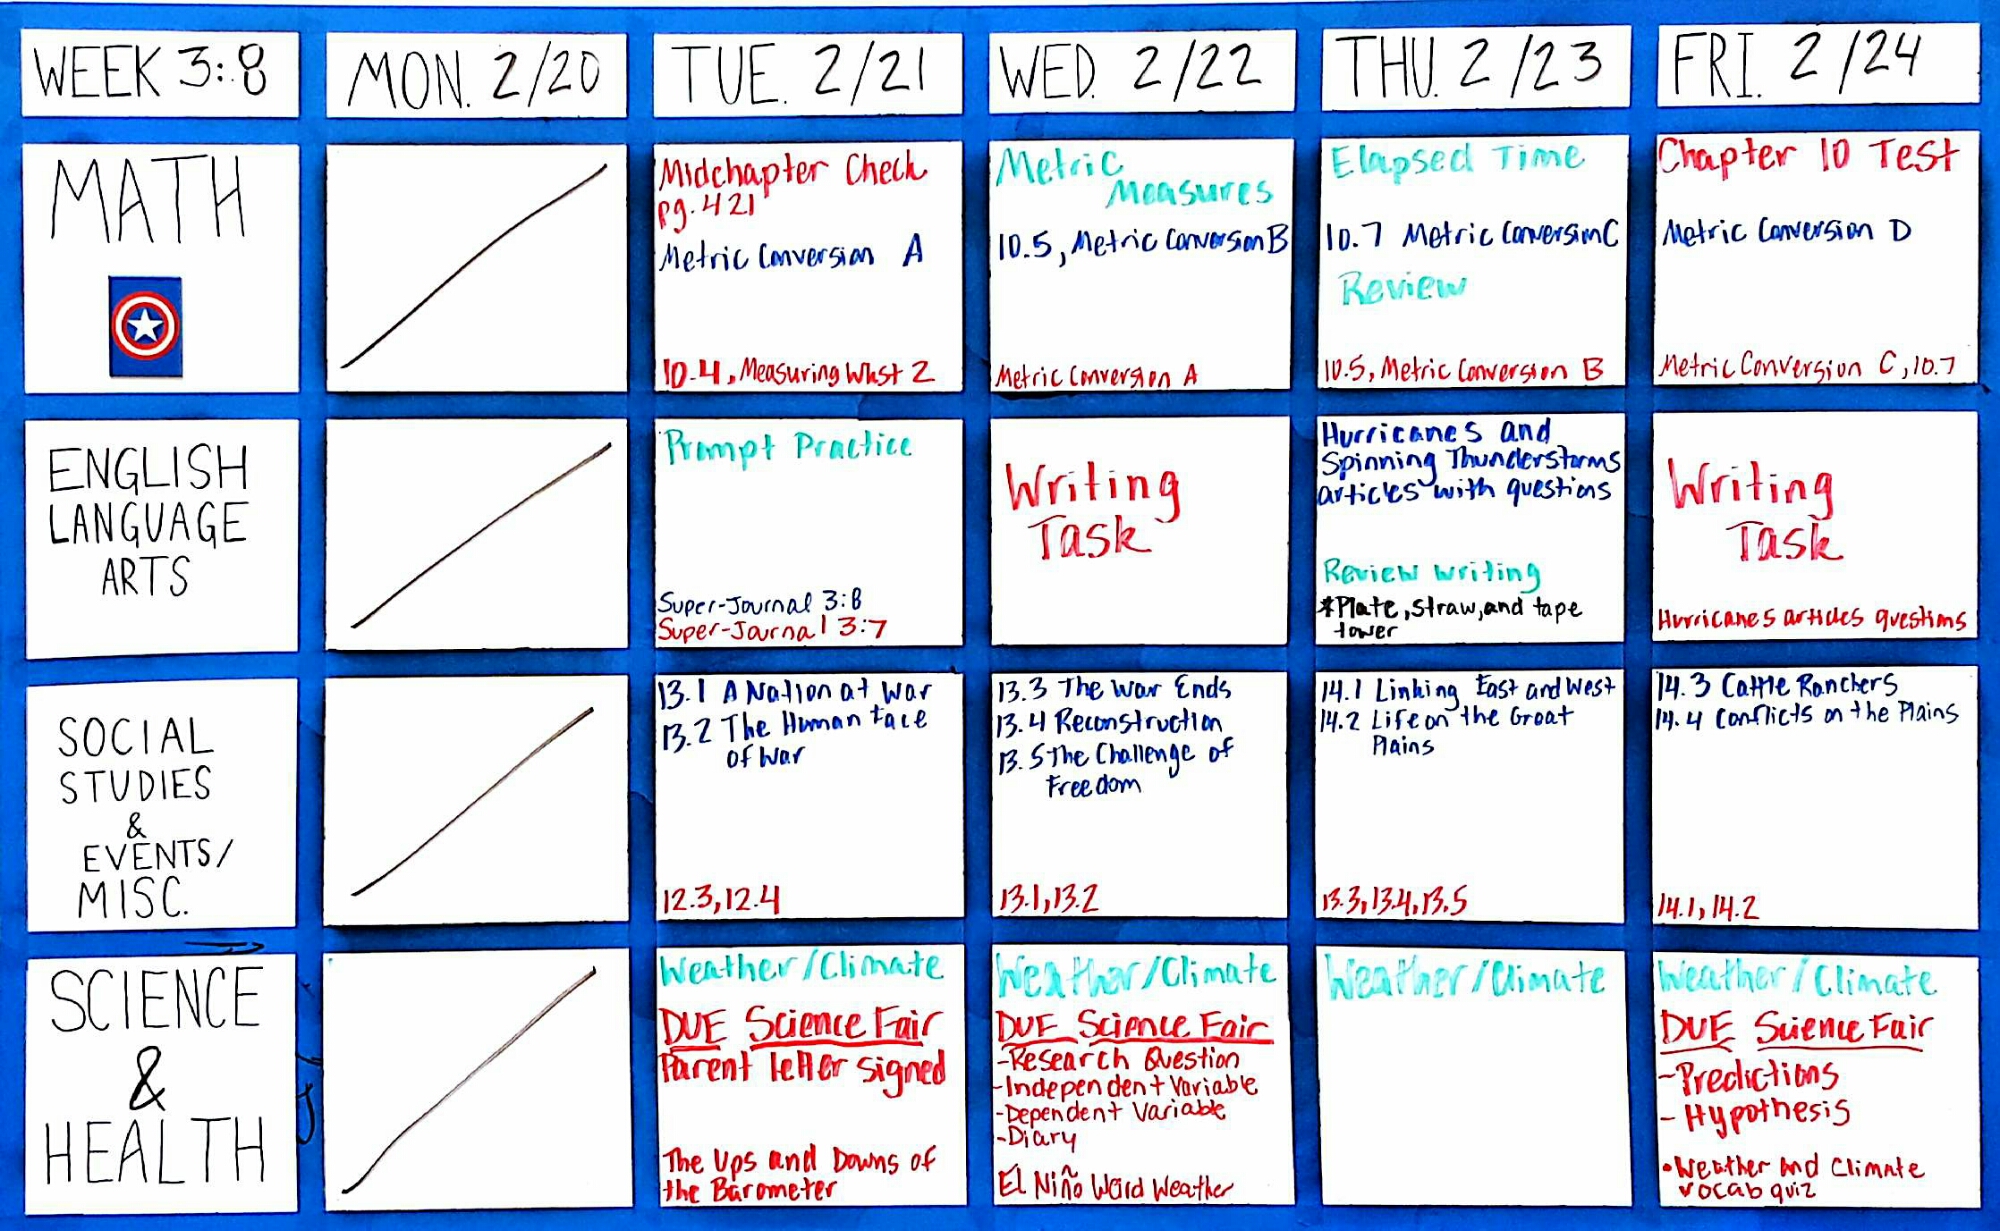 WEEK 3:8
MON. 2/20
TUE. 2/21
WED. 2/22
THU. 2/23
FRI. 2/24
MATH
Midchapter Check
pg. 421
Metric Conversion A
10.4, Measuring Wkst 2
Metric
Measures
10.5, Metric Conversion B
Metric Conversion A
Elapsed Time
10.7 Metric Conversion C
Review
10.5, Metric Conversion B
Chapter 10 Test
Metric Conversion D
Metric Conversion C, 10.7
ENGLISH
LANGUAGE
ARTS
Prompt Practice
Super-Journal 3:8
Super-Journal 3:7
Writing
Task
Hurricanes and
Spinning Thunderstorms
articles with questions
Review writing
*Plate, straw, and tape
tower
Writing
Task
Hurricanes articles questions
SOCIAL
STUDIES
&
EVENTS/
MISC.
13.1 A Nation at War
13.2 The Human Face
of War
12.3, 12.4
13.3 The War Ends
13.4 Reconstruction
13.5 The Challenge of
Freedom
13.1, 13.2
14.1 Linking East and West
14.2 Life on the Great
Plains
13.3, 13.4, 13.5
14.3 Cattle Ranchers
14.4 Conflicts on the Plains
14.1, 14.2
SCIENCE
&
HEALTH
Weather/Climate
DUE Science Fair
Parent letter signed
The Ups and Downs of
the Barometer
Weather/Climate
DUE Science Fair
-Research Question
-Independent Variable
-Dependent Variable
-Diary
El Niño Weird Weather
Weather/Climate
Weather/Climate
DUE Science Fair
-Predictions
-Hypothesis
•Weather and Climate
vocab quiz